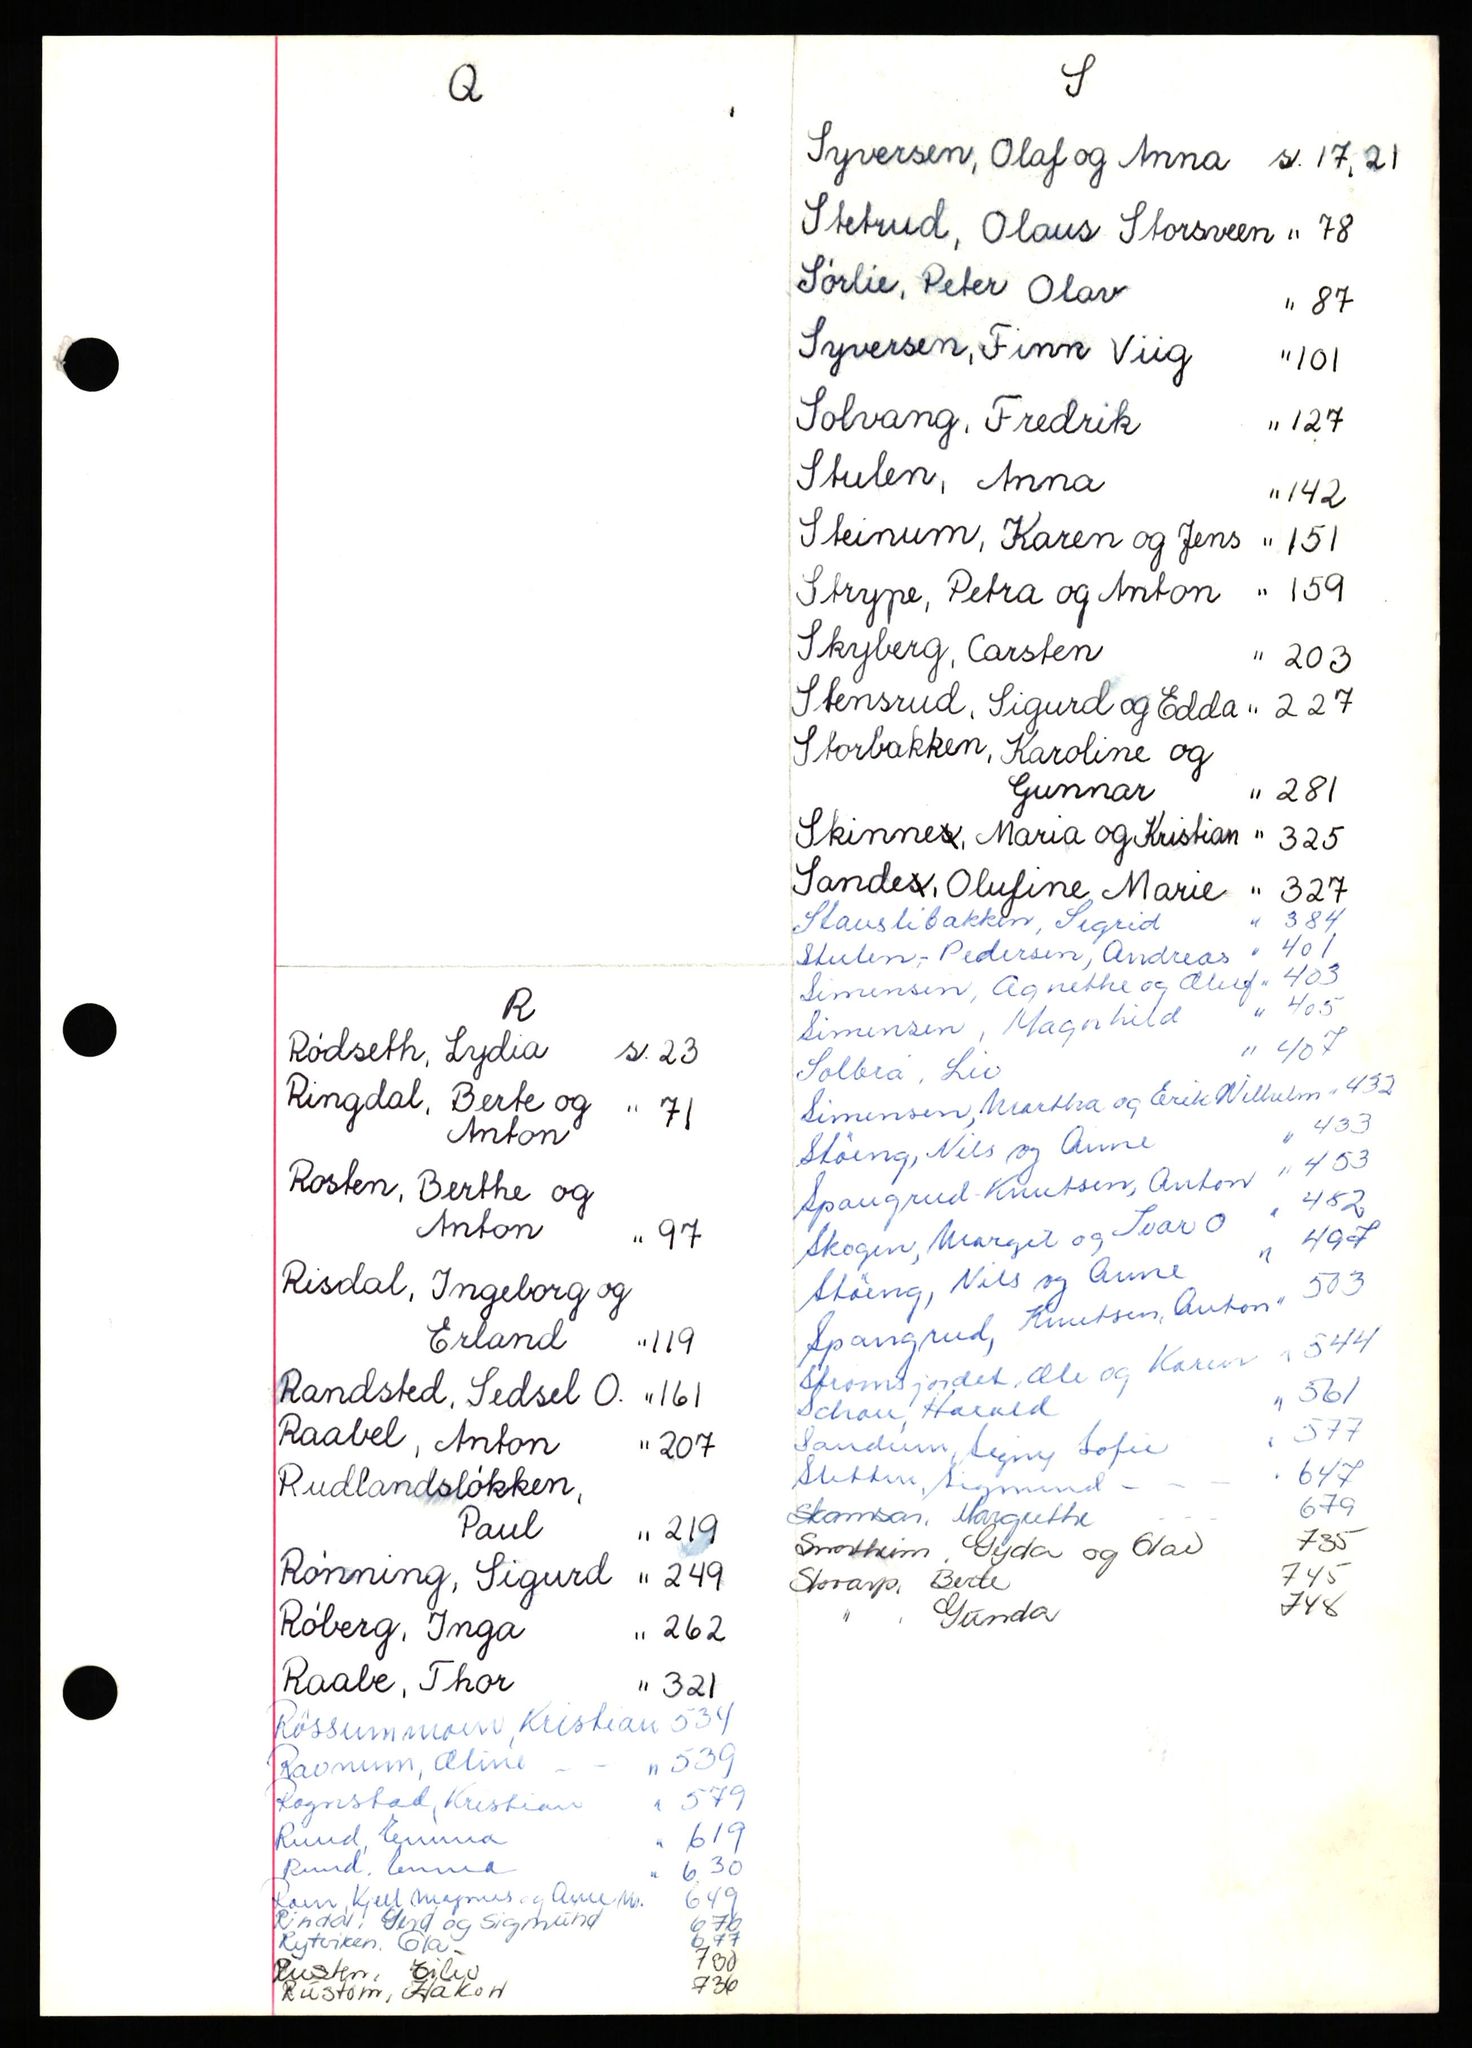 Q
R
Rödseth, Lydia s. 23
Ringdal, Berte og " 71
Anton
Rosten, Berthe og
Anton " 97
Risdal, Ingeborg og
Erland " 119
Randsted, Sedsel O. " 161
Raabel, Anton " 207
Rudlandslökken,
Paul " 219
Rönning, Sigurd " 249
Röberg, Inga " 262
Raabe, Thor " 321
Rössummoen, Kristian 534
Ravnum, Oline - - " 539
Rognstad, Kristian " 579
Ruud, Emma " 619
Ruud, Emma " 630
Kjell Magnus og Anne M. 649
Rindal, Gerd og Sigmund 676
Rytviken, Ola - 677
Rusten, Eiliv 730
Rustom, Håkon 736
S
Syversen, Olaf og Anna s. 17, 21
Stetrud, Olaus Storsveen " 78
Sörlie, Peter Olav " 87
Syversen, Finn Viig " 101
Solvang, Fredrik " 127
Stulen, Anna " 142
Steinum, Karen og Jens " 151
Strype, Petra og Anton " 159
Skyberg, Carsten " 203
Stensrud, Sigurd og Edda " 227
Storbakken, Karoline og
Gunnar " 281
Skinnes, Maria og Kristian " 325
Sandes, Olufine Marie " 327
Stauslibakken, Sigrid " 384
Stulen,- Pedersen, Andreas " 401
Simensen, Agnethe og Oluf " 403
Simensen, Magnhild " 405
Solbrå, Liv " 407
Simensen, Martha og Erik Wilhelm " 432
Stöeng, Nils og Anne " 433
Spangrud-Knutsen, Anton " 453
Skogen, Margit og Ivar O " 482
Stöeng, Nils og Anne " 497
Spangrud, Knutsen, Anton " 503
Strömsjordet, Ole og Karen " 544
Schou, Harald " 561
Sandum, Signy Sofie " 577
Sletten, Sigmund - - - " 647
Skamsar, Margrethe - - - 679
Snortheim, Gyda og Olav 735
Storarp, Berte 745
" , Gunda 748